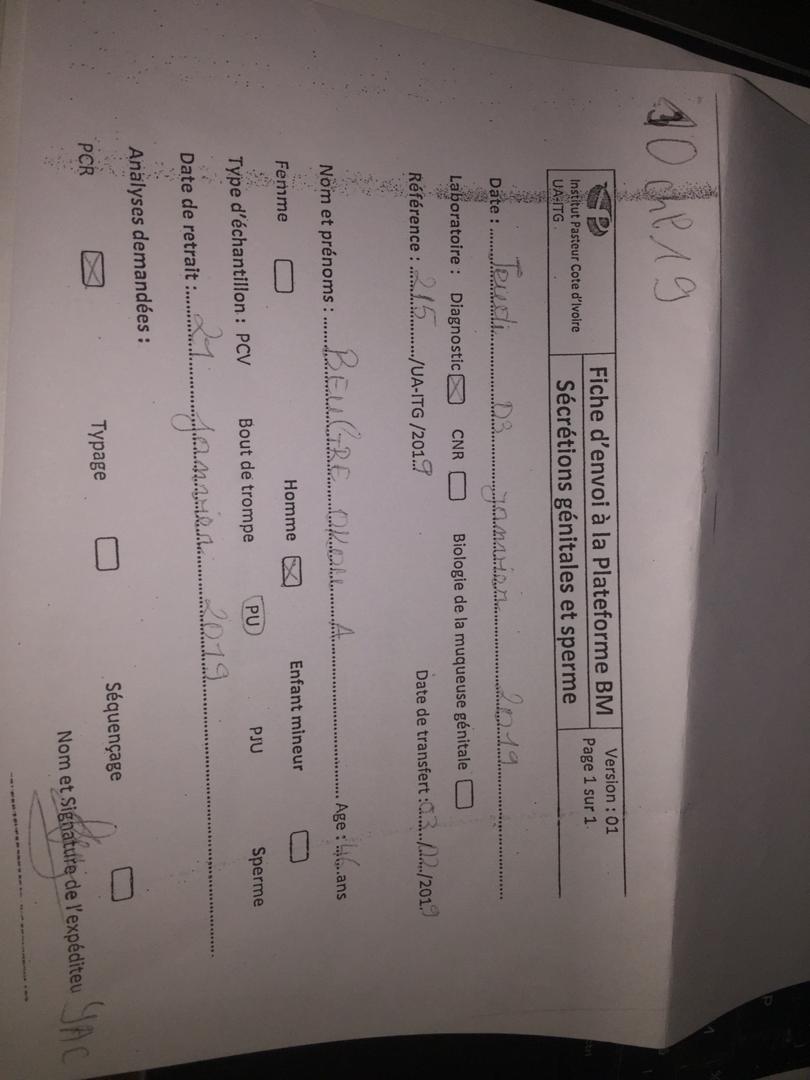 10 CHP 19
Institut Pasteur Cote d'Ivoire
UA-ITG
Fiche d'envoi à la Plateforme BM
Sécrétions génitales et sperme
Version : 01
Page 1 sur 1
Date : Jeudi 03 janvier 2019
Laboratoire : Diagnostic ☒ CNR ☐ Biologie de la muqueuse génitale ☐
Référence : 215 /UA-ITG /2019 Date de transfert : 03/ /2019
Nom et prénoms : BEUGRE OKOU A Age : 46 ans
Femme ☐ Homme ☒ Enfant mineur ☐
Type d'échantillon : PCV Bout de trompe PU PJU Sperme
Date de retrait : 21 janvier 2019
Analyses demandées :
PCR ☒ Typage ☐ Séquençage ☐
Nom et Signature de l'expéditeu YAC